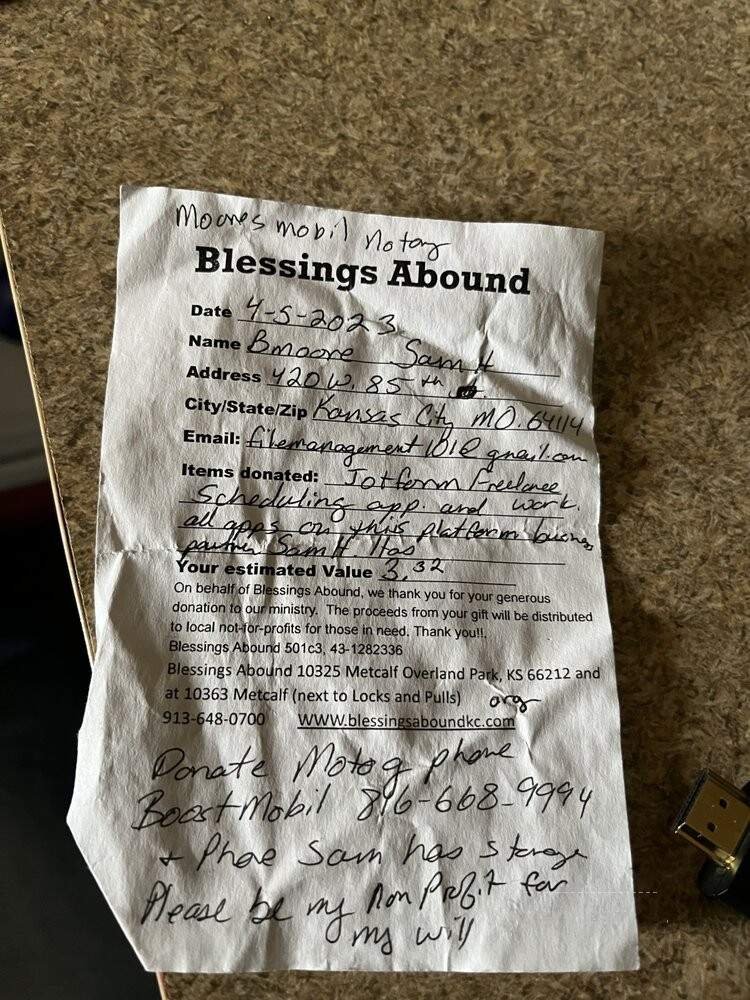 Moores mobil Notary
Blessings Abound
Date 4-5-2023
Name Bmoore Sam H
Address 420 W. 85th
City/State/Zip Kansas City MO. 64114
Email: filemanagement101@gmail.com
Items donated: Jotform Freelance
Scheduling app. and work.
all apps on this platform busines
partner Sam H Has
Your estimated Value 3,32
On behalf of Blessings Abound, we thank you for your generous
donation to our ministry. The proceeds from your gift will be distributed
to local not-for-profits for those in need. Thank you!!.
Blessings Abound 501c3, 43-1282336
Blessings Abound 10325 Metcalf Overland Park, KS 66212 and
at 10363 Metcalf (next to Locks and Pulls) org
913-648-0700 WWW.blessingsaboundkc.com
Donate Moto g phone
Boost Mobil 816-668-9994
+ Phoe Sam has storage
Please be my Non Profit for
my will